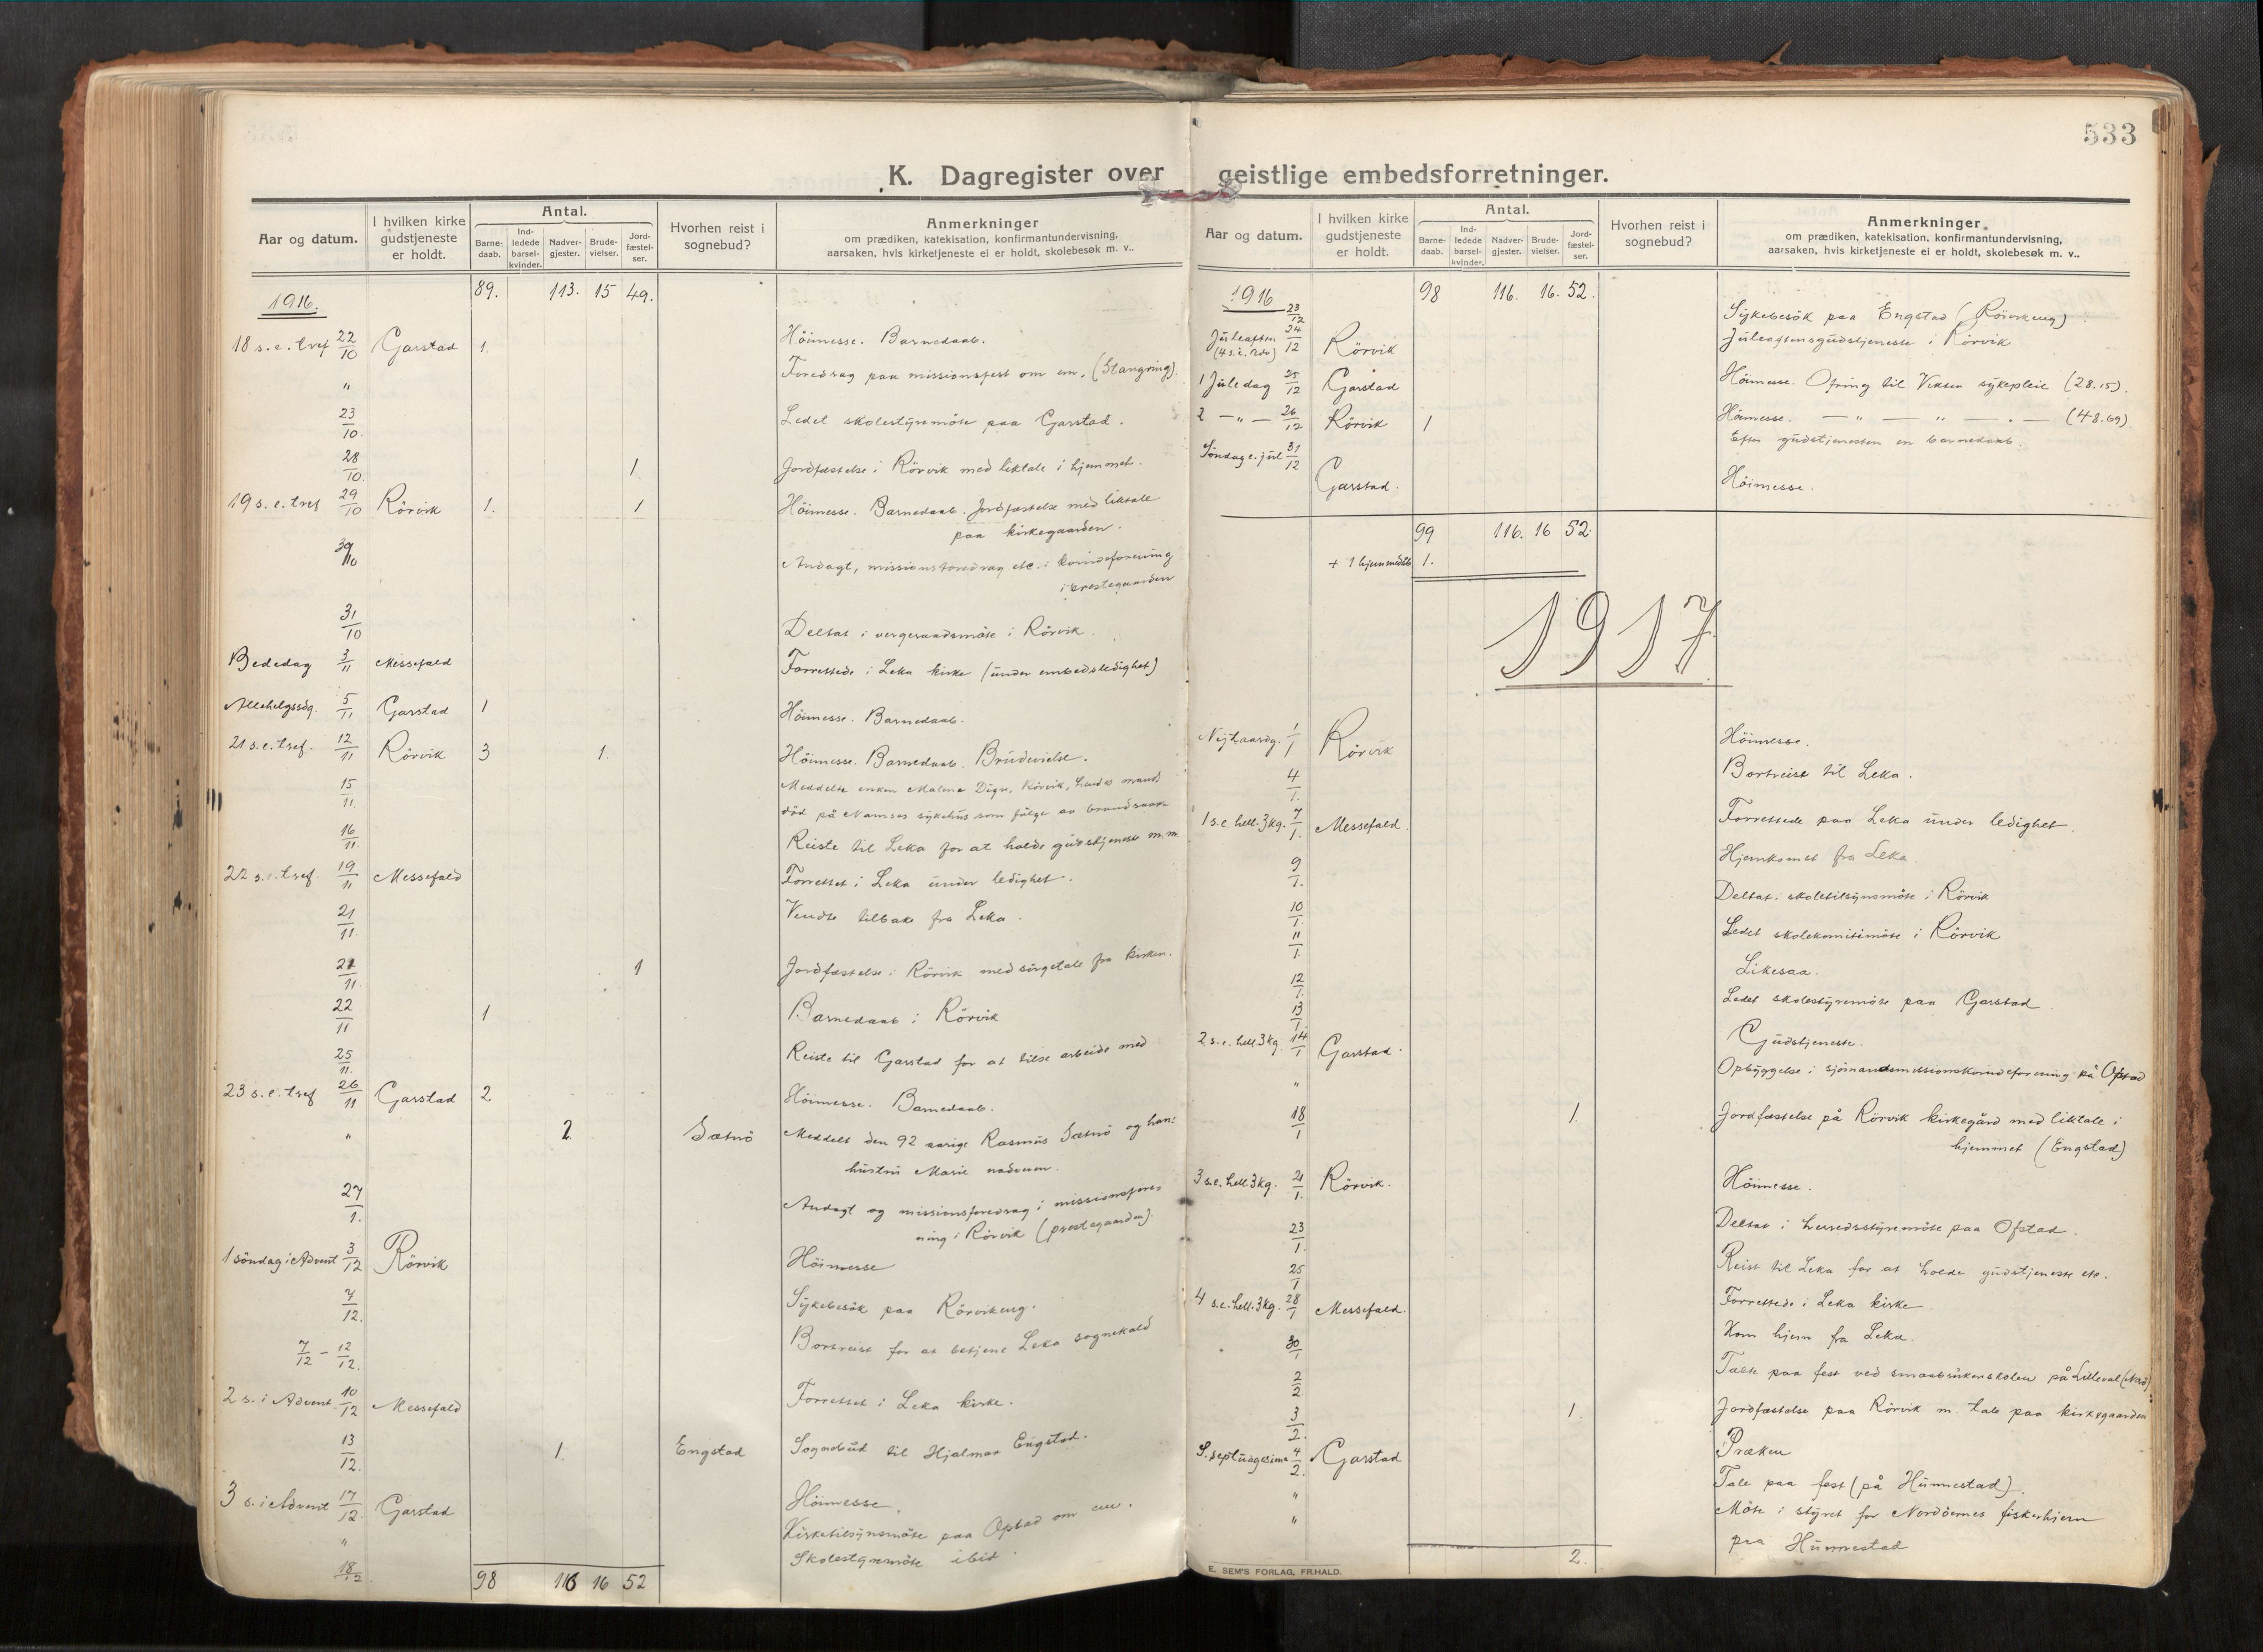 533
K. Dagregister over geistlige embedsforretninger.
Aar og datum. I hvilken kirke gudstjeneste er holdt. Antal. Barne-daab. Ind-ledede barsel-kvinder. Nadver-gjester. Brude-vielser. Jord-fæstel-ser. Hvorhen reist i sognebud? Anmerkninger om prædiken, katekisation, konfirmantundervisning, aarsaken, hvis kirketjeneste ei er holdt, skolebesøk m. v..
1916. 89. 113. 15 49.
18 s. e. tref 22/10 Garstad 1. Höimesse. Barnedaab.
" Foredrag paa missionsfest om em. (Stangring).
23/10. Ledet skolestyremöte paa Garstad.
28/10. 1. Jordfæstelse i Rörvik med liktale i hjemmet.
19 s. e. tref 29/10 Rörvik 1. 1 Höimesse. Barnedaab. Jordfæstelse med liktale
paa kirkegaarden.
30/10 Andagt, missionsforedrag etc. i kvindeforening
i prestegaarden
31/10 Deltat i vergeraadsmöte i Rörvik.
Bededag 3/11 Messefald Forrettede i Leka kirke (under embedsledighet)
Allehelgsdg. 5/11 Garstad 1 Höimesse. Barnedaab.
21 s. e. tref. 12/11 Rörvik 3 1. Höimesse. Barnedaab. Brudevielse.
15/11. Meddelte enken Malena Digre, Rörvik, hendes mands
död på Namsos sykehus som fölge av brandsaar
16/11. Reiste til Leka for at holde gudstjeneste m. m.
22 s. e. tref. 19/11 Messefald Forrettet i Leka under ledighet.
21/11. Vendte tilbake fra Leka.
21/11 1 Jordfæstelse i Rörvik med sörgetale fra kirken.
22/11 1 Barnedaab i Rörvik
25/11. Reiste til Garstad for at tilse arbeide med
23 s. e. tref 26/11 Garstad 2 Höimesse. Barnedaab.
" 2 Sætnö Meddelt den 92 aarige Rasmus Sætnö og hans
hustru Marie nadveren.
27/1. Andagt og missionsforedrag i missionsfore-
ning i Rörvik (prestegaarden).
1 söndag i Advent 3/12 Rörvik Höimesse
7/12. Sykebesök paa Rörvikeng.
7/12 - 12/12. Bortreist for at betjene Leka sognekald
2 s. i Advent 10/12 Messefald Forrettet i Leka kirke.
13/12. 1. Engstad Sognebud til Hjalmar Engstad.
3 s. i Advent 17/12. Garstad Höimesse.
" Kirketilsynsmöte paa Opstad om em.
18/12 Skolestyremöte ibid.
98 116 16 52
Aar og datum. I hvilken kirke gudstjeneste er holdt. Antal. Barne-daab. Ind-ledede barsel-kvinder. Nadver-gjester. Brude-vielser. Jord-fæstel-ser. Hvorhen reist i sognebud? Anmerkninger om prædiken, katekisation, konfirmantundervisning, aarsaken, hvis kirketjeneste ei er holdt, skolebesøk m. v..
1916 98 116. 16. 52.
23/12 Sykebesök paa Engstad (Rörvikeng).
Juleaften (4 s. i. Adv) 24/12 Rörvik Juleaftensgudstjeneste i Rörvik
1 Juledag 25/12 Garstad Höimesse. Ofring til Vikten sykepleie (28.15).
2 — " — 26/12 Rörvik 1 Höimesse. — " — " — " — (48.69)
Efter gudstjenesten en barnedaab.
Söndag e. jul 31/12 Garstad. Höimesse.
99 116. 16 52.
+ 1 hjemmedöbt 1.
1917.
Nytaarsdg. 1/1 Rörvik Höimesse.
4/1. Bortreist til Leka.
1 s. e. hell. 3 kg. 7/1. Messefald. Forrettede paa Leka under ledighet.
9/1. Hjemkomst fra Leka.
10/1. Deltat i skoletilsynsmöte i Rörvik
11/1. Ledet skolekomitemöte i Rörvik
12/1. Likesaa.
13/1 Ledet skolestyremöte paa Garstad
2 s. e. hell. 3 kg. 14/1 Garstad. Gudstjeneste.
" Opbyggelse i sjömandsmissionskvindeforening på Opstad
18/1 1. Jordfæstelse på Rörvik kirkegård med liktale i
hjemmet (Engstad)
3 s. e. hell. 3 kg. 21/1. Rörvik. Höimesse.
23/1. Deltat i herredsstyremöte paa Ofstad.
25/1 Reist til Leka for at holde gudstjeneste etc.
4 s. e. hell. 3 kg. 28/1 Messefald. Forrettede i Leka kirke
30/1 Kom hjem fra Leka.
2/2 Talte paa fest ved smaabrukerskolen på Lilleval
3/2. 1. Jordfæstelse paa Rörvik m. tale paa kirkegaarden
S. septuagesima 4/2. Garstad Præken
" Tale paa fest (på Hunnestad).
" Möte i styret for Nordöernes fiskerhjem
paa Hunnestad
2.
E. SEM'S FORLAG, FR.HALD.